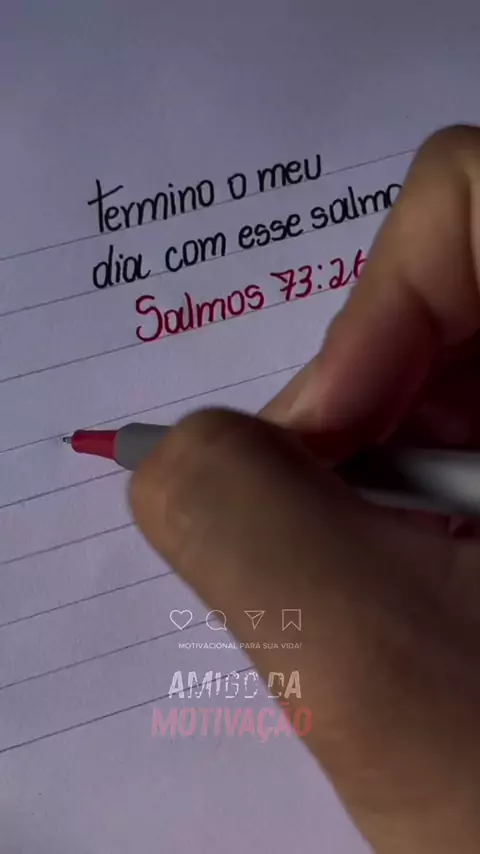 termino o meu
dia com esse salmo
Salmos 73:26
MOTIVACIONAL PARA SUA VIDA!
AMIGO DA
MOTIVAÇÃO